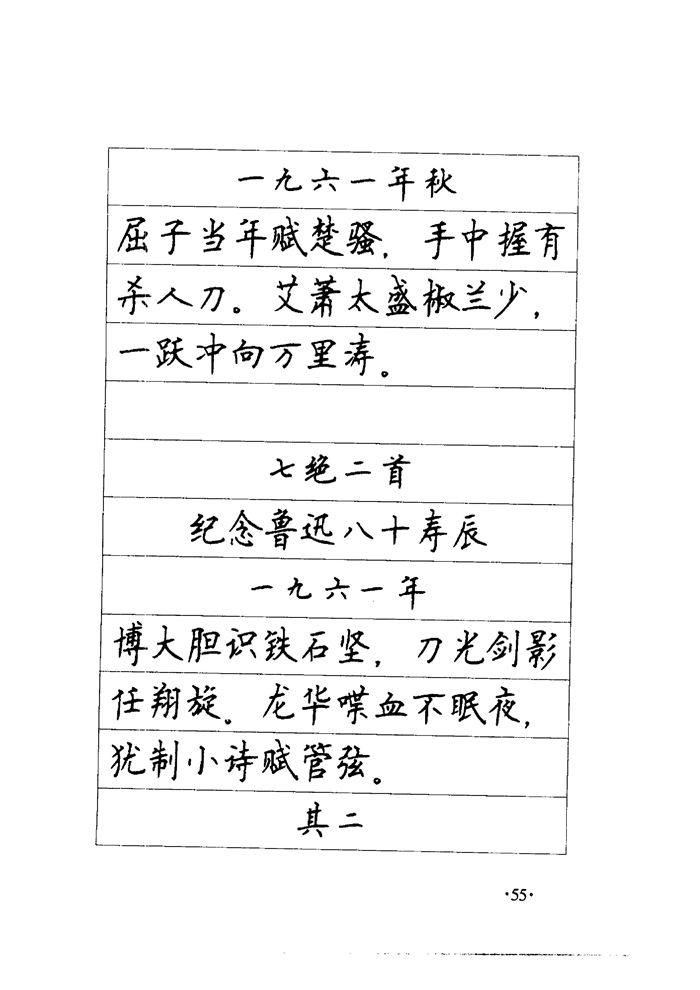 一九六一年秋
屈子当年赋楚骚，手中握有
杀人刀。艾萧太盛椒兰少，
一跃冲向万里涛。
七绝二首
纪念鲁迅八十寿辰
一九六一年
博大胆识铁石坚，刀光剑影
任翔旋。龙华喋血不眠夜，
犹制小诗赋管弦。
其二
·55·